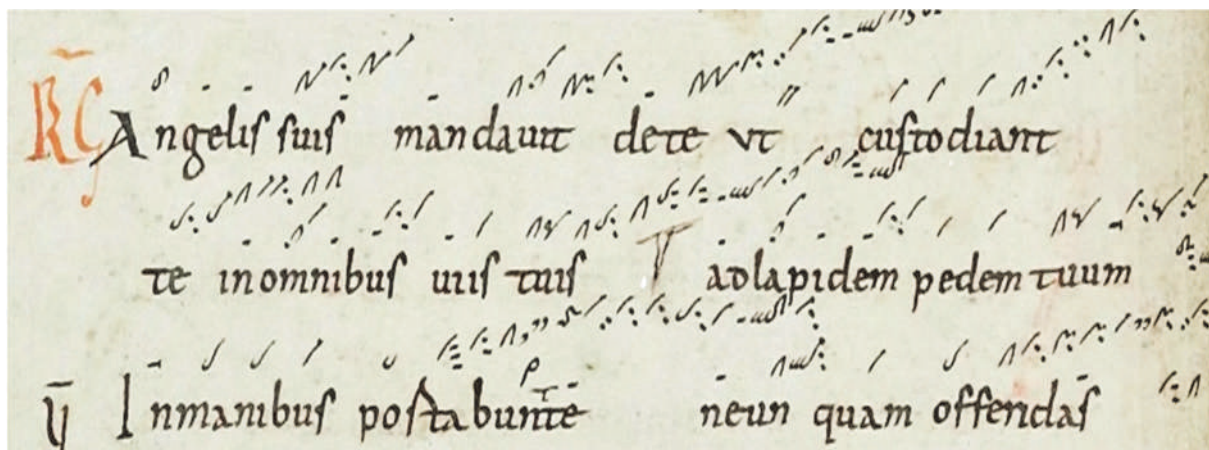 R̄G Angelis suis mandauit dete vt custodiant
te inomnibus uiis tuis T adlapidem pedem tuum
V̄ Inmanibus portabunt te neun quam offendas